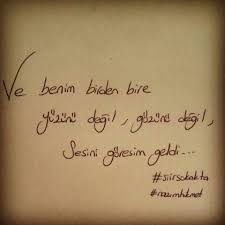 Ve benim birden bire
yüzünü değil, gözünü değil,
Sesini göresim geldi...
#siirsokakta
#nazımhikmet